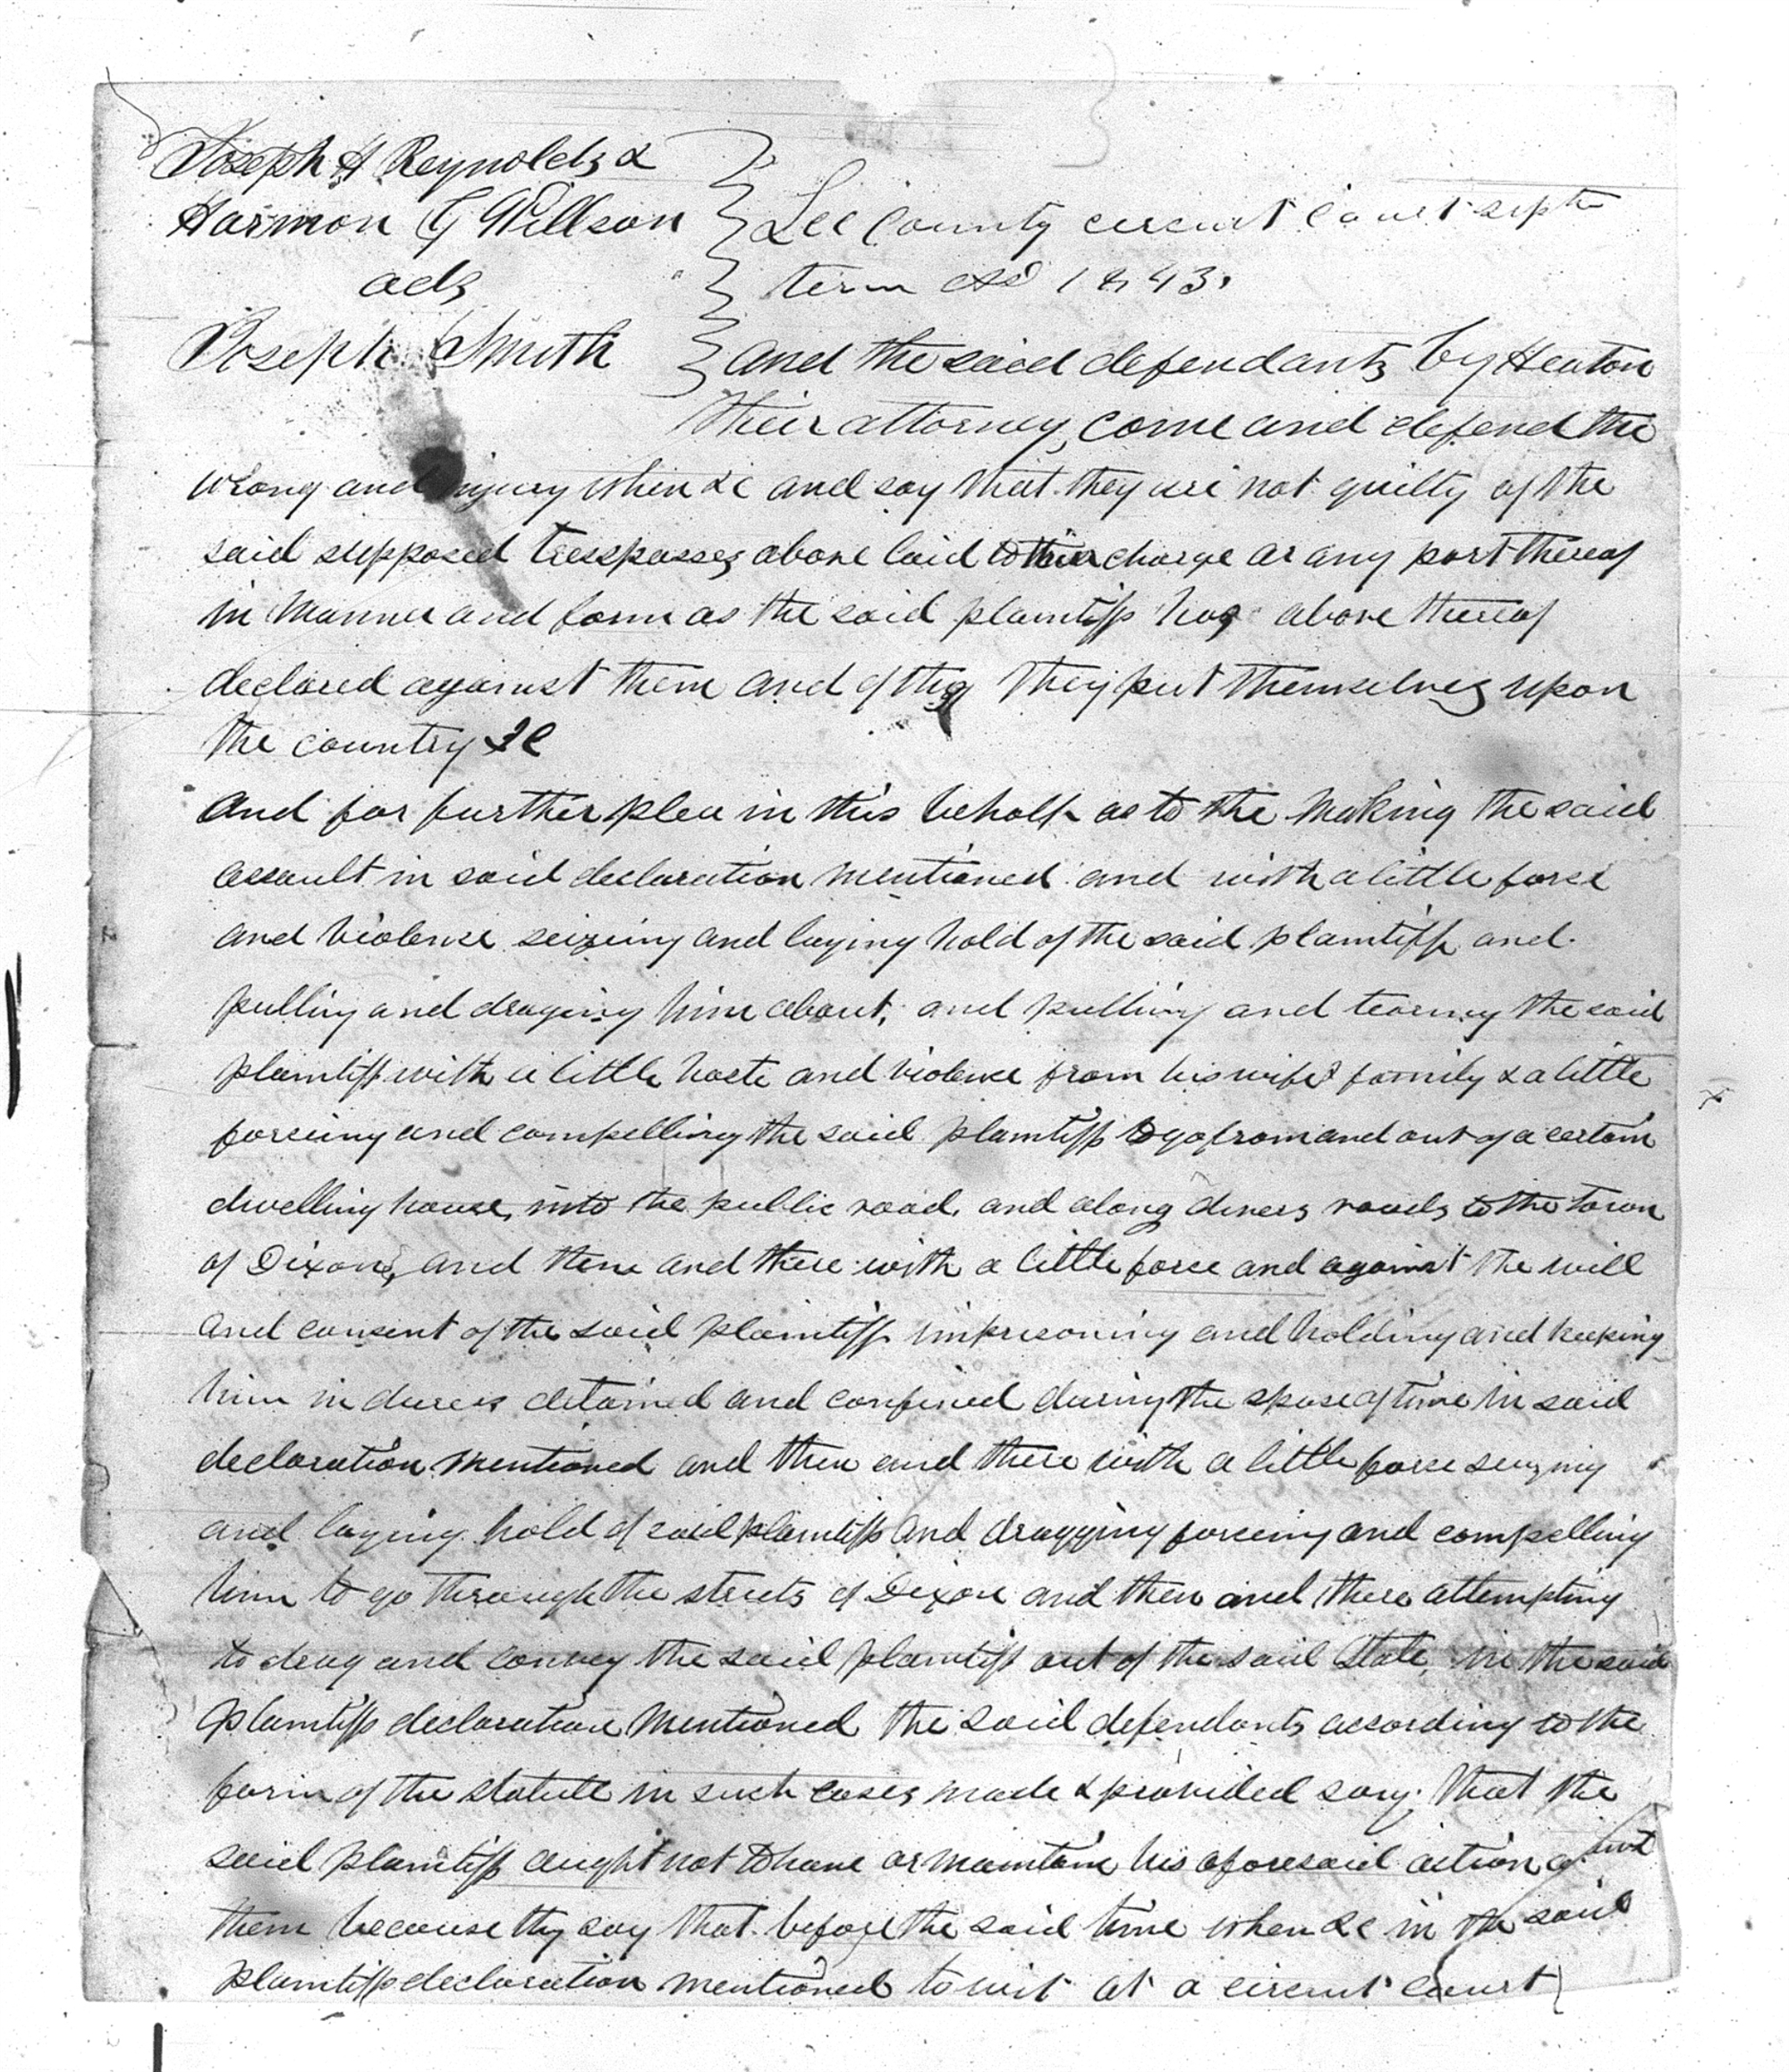 Joseph H Reynolds &
Harmon G Willson
ads
Joseph Smith
Lee County circuit court sept
term AD 1843.
And the said defendants by Heaton
their attorney, come and defend the
wrong and injury when &c and say that they are not guilty of the
said supposed tresspasses above laid to their charge or any part thereof
in manner and form as the said plaintiff has above thereof
declared against them and of this they put themselves upon
the country &c
And for further plea in this behalf as to the making the said
assault in said declaration mentioned and with a little force
and violence seizing and laying hold of the said plaintiff and
pulling and draging him about, and pulling and tearing the said
plaintiff with a little haste and violence from his wife & family & a little
forceing and compelling the said plaintiff to go from and out of a certain
dwelling house, into the public road, and along divers roads to the town
of Dixon, and then and there with a little force and against the will
and consent of the said plaintiff imprisoning and holding and keeping
him in duress detained and confined during the space of time in said
declaration mentioned and then and there with a little force seizing
and laying hold of said plaintiff and dragging forceing and compelling
him to go through the streets of Dixon and then and there attempting
to drag and convey the said plaintiff out of the said State, in the said
plaintiffs declaration mentioned the said defendants according to the
form of the statute in such cases made & provided say; that the
said plaintiff aught not to have or maintain his aforesaid action against
them because thy say that before the said time when &c in the said
plaintiffs declaration mentioned to wit at a circuit court